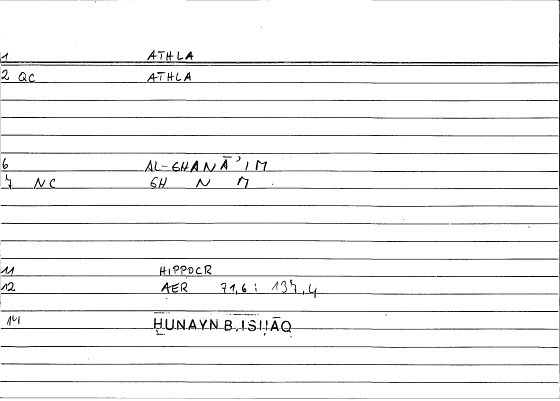 1 ATHLA
2 QC ATHLA
6 AL-GHANĀ'IM
7 NC GH N M
11 HIPPOCR
12 AER 71,6: 137,4
14 ḤUNAYN B. ISḤĀQ